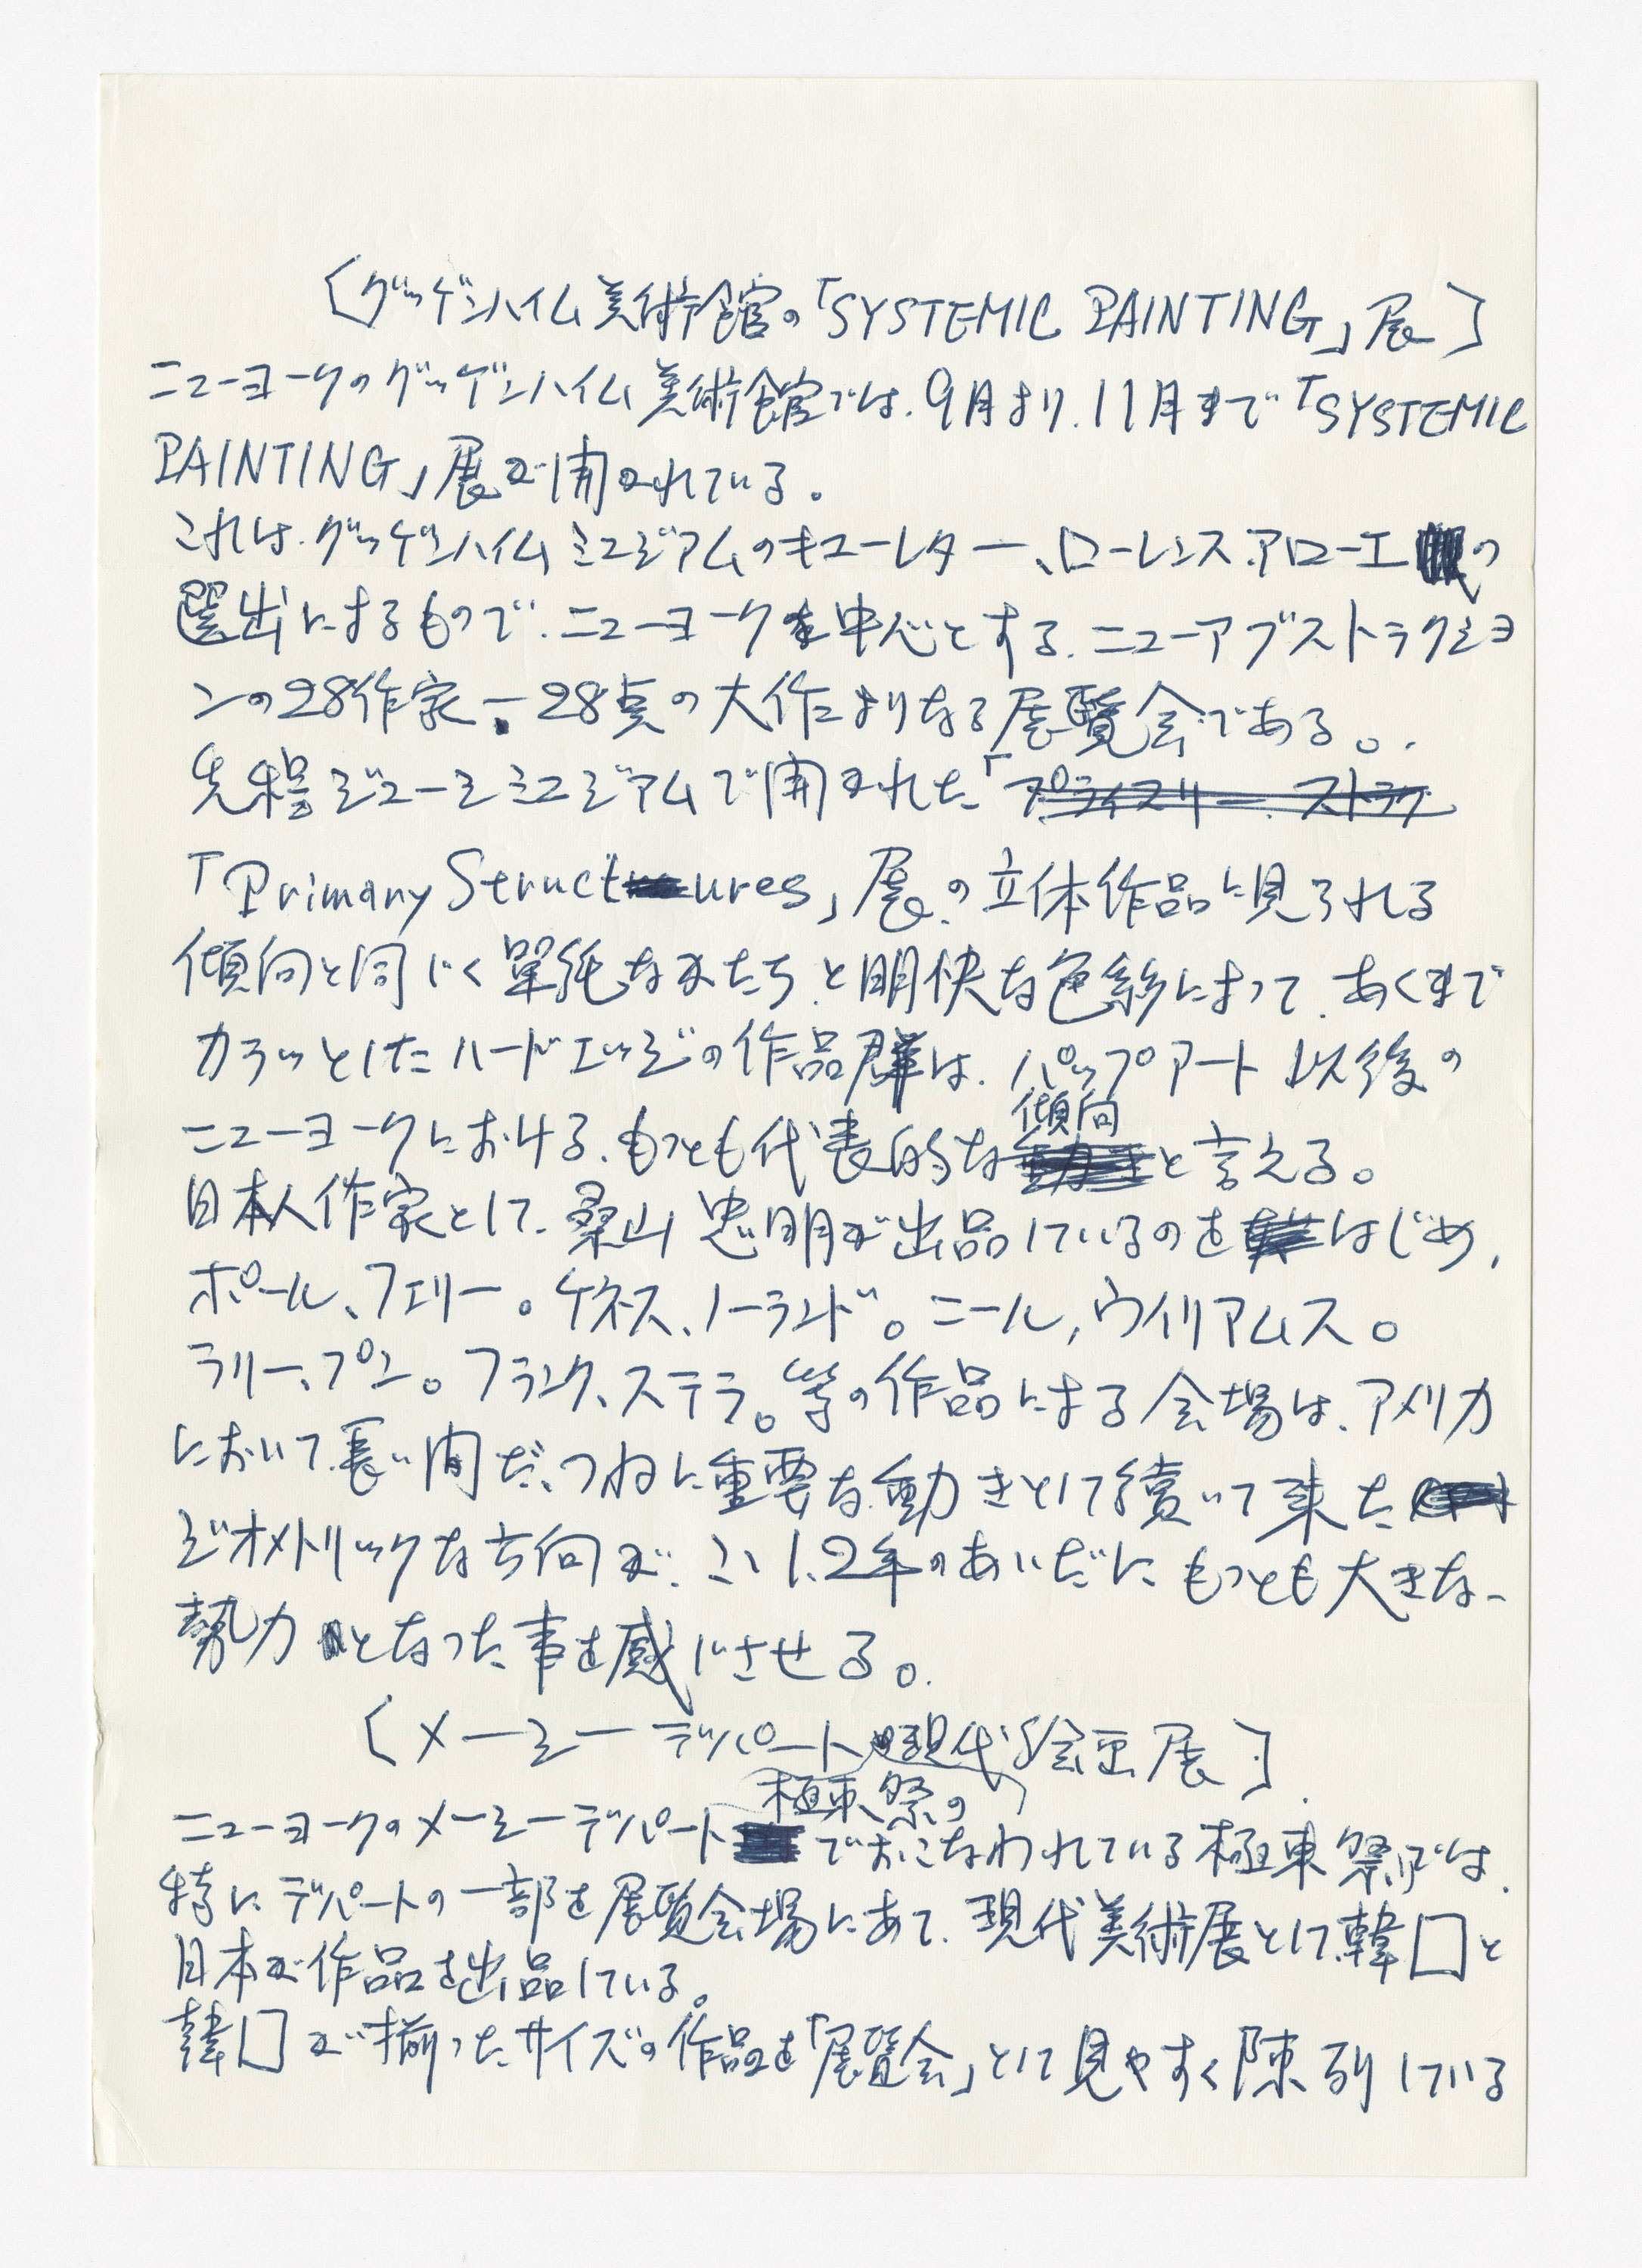 〔グッゲンハイム美術館の「SYSTEMIC PAINTING」展〕
ニューヨークのグッゲンハイム美術館では、9月より、11月まで「SYSTEMIC
PAINTING」展が開かれている。
これは、グッゲンハイムミュジアムのキューレター、ローレンス、アローエの
選出によるもので、ニューヨークを中心とする、ニューアブストラクショ
ンの28作家、28点の大作よりなる展覧会である。
先程ジューシミュジアムで開かれた「プライメリー、ストラク
「Primary Structures」展、の立体作品に見られる
傾向と同じく單純なかたち、と明快な色彩によって、あくまで
カラッとしたハードエッジの作品群は、パップアート以後の
ニューヨークにおける、もっとも代表的な傾向と言える。
日本人作家として、桑山忠明が出品しているのをはじめ、
ポール、フェリー。ケネス、ノーランド。ニール、ウイリアムス。
ラリー、プン。フランク、ステラ。等の作品による会場は、アメリカ
において、長い間だ、つねに重要な動きとして續いて来た
ジオメトリックな方向が、ここ1、2年のあいだに、もっとも大きな
勢力となった事を感じさせる。
〔メーシーデパート現代絵画展〕
ニューヨークのメーシーデパート極東祭のでおこなわれている極東祭では、
特にデパートの一部を展覧会場にあて、現代美術展として韓囗と
日本が作品を出品している。
韓囗が揃ったサイズの作品を「展覧会」として見やすく陳列している